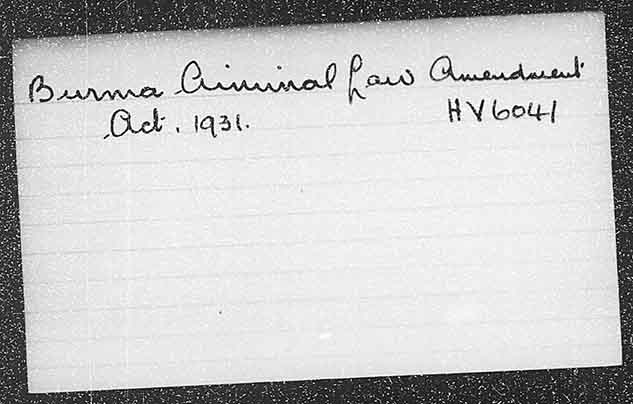 Burma Criminal Law Amendment
Act. 1931. HV6041